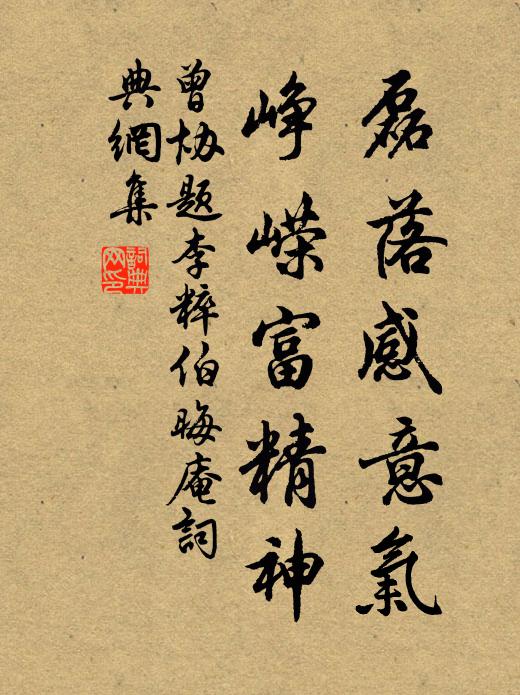 磊落感意氣
峥嶸富精神
曾協題李粹伯晦庵詞
典網集
詞典网印